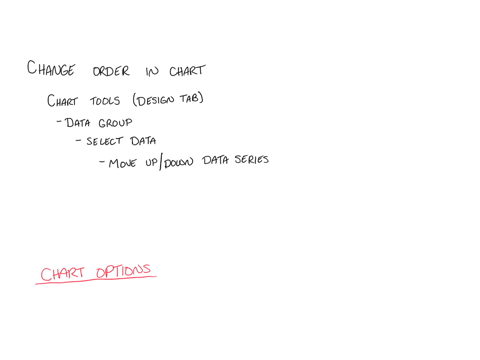 CHANGE ORDER IN CHART
CHART TOOLS (DESIGN TAB)
- DATA GROUP
- SELECT DATA
- MOVE UP/DOWN DATA SERIES
CHART OPTIONS